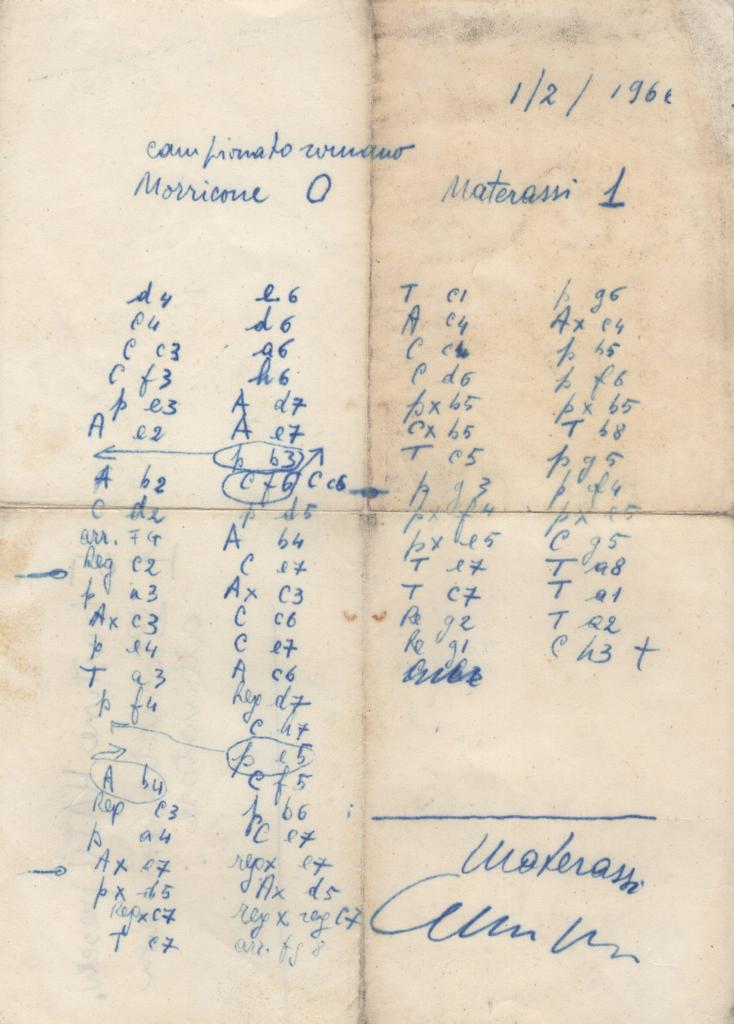 1/2/196
campionato romano
Morricone 0 Materassi 1
d4 e6
c4 d6
C c3 a6
C f3 h6
p e3 A d7
A e2 A e7
p b3
A b2 C f6 C c6
C d2 p d5
arr. A b4
Reg c2 C e7
p a3 Ax c3
Ax c3 C c6
p e4 C e7
T a3 A c6
p f4 Reg d7
C h7
p e5
A b4 C f5
Reg c3 p b6
p a4 C e7
Ax e7 regx e7
px d5 Ax d5
Regxc7 reg x reg c7
T c7 arr. 8
T c1 p g6
A c4 Ax c4
C p b5
C d6 p f6
px b5 px b5
Cx b5 T b8
T c5 p g5
p g3 p g4
px f4 px e5
px e5 C g5
T e7 T a8
T c7 T a1
Re g2 T a2
Re g1 C h3 +
Materassi